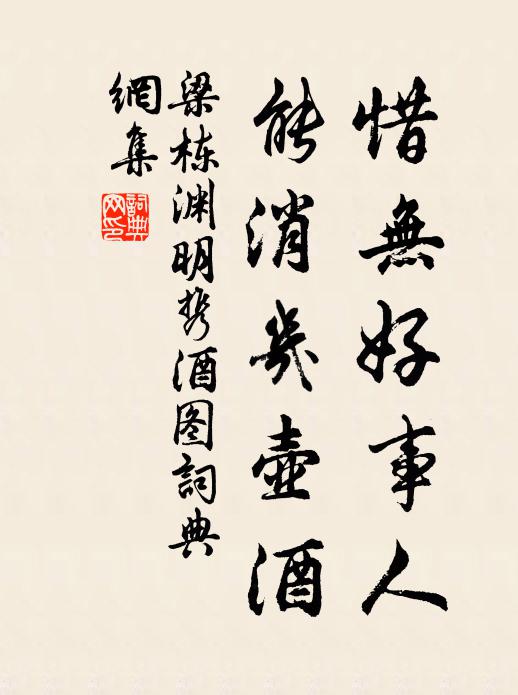 惜無好事人
能消幾壺酒
梁栋渊明携酒图詞典
網集
詞典
网印